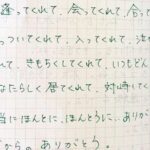 逢ってくれて、会ってくれて、合っ
っついてくれて、入ってくれて、
れて、きもちくしてくれて、いつもどん
なたらしく居てくれて、対峙してく
当にほんとに、ほんとうに…ありが
からの ありがとう。